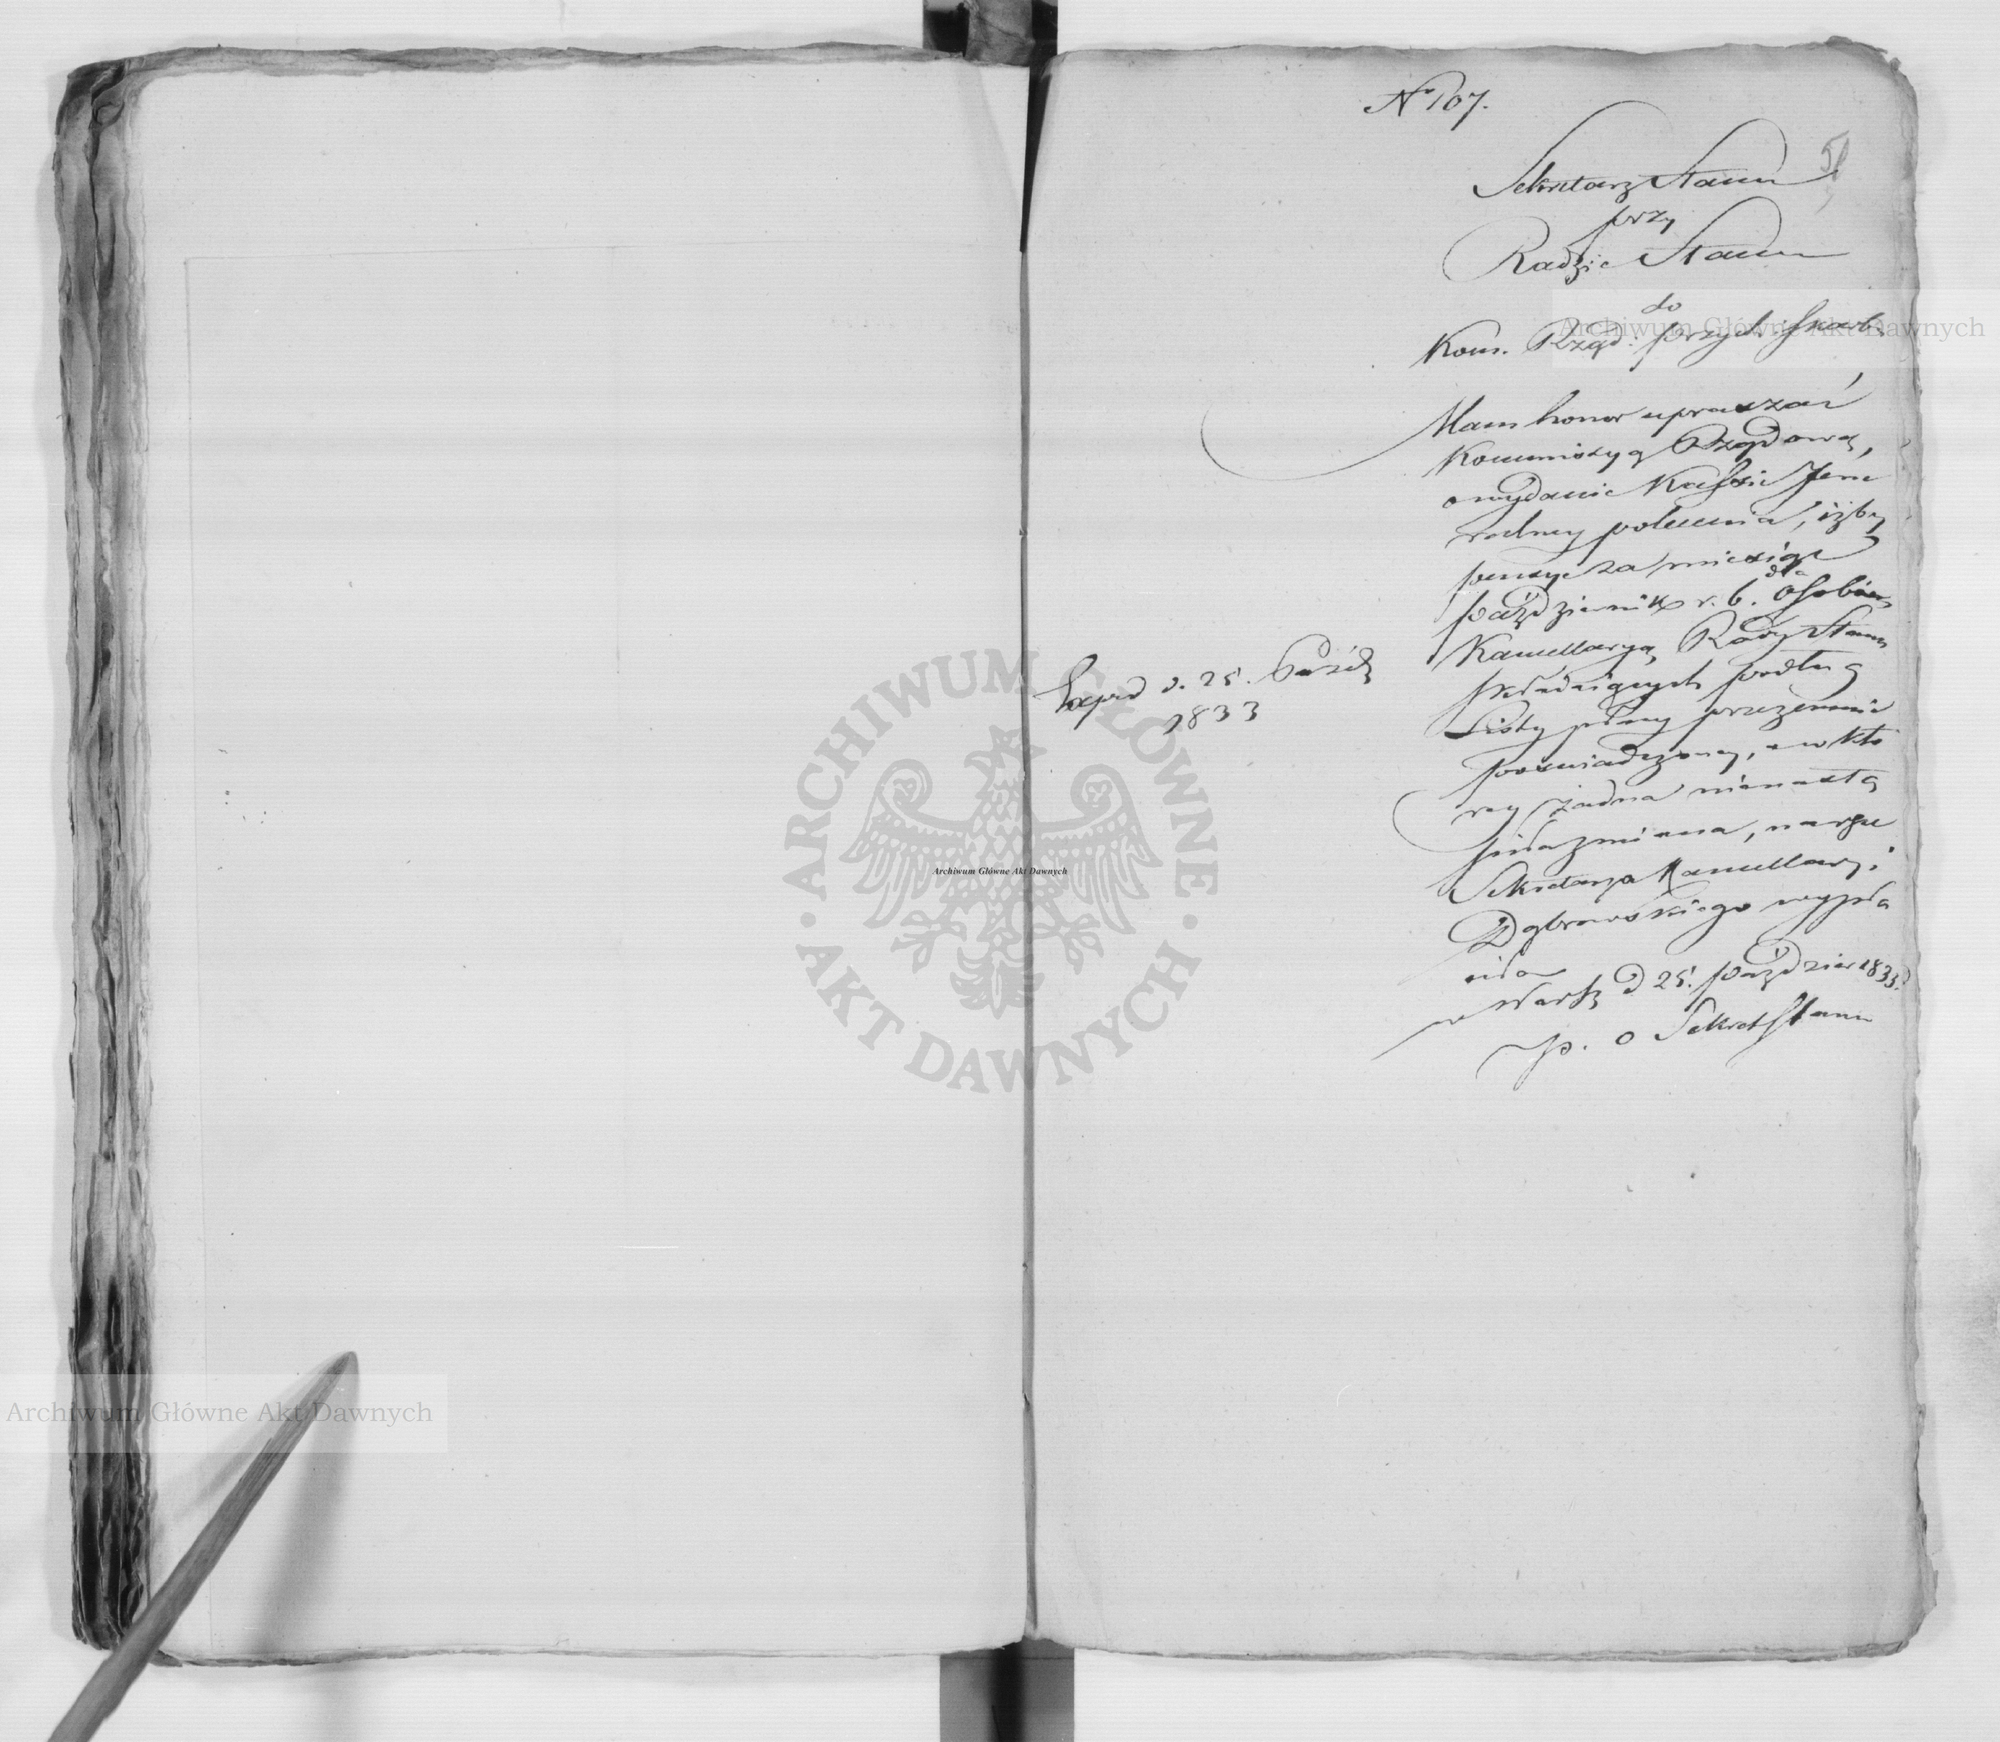 No 107.
51
Sekretarz Stanu
przy
Radzie Stanu
do
Kom. Rząd: Przych: Skarb:
Mam honor upraszać
Kommissyą Rządową,
o wydanie Kassie Jene
ralney polecenia, iżby
pensye za miesiąc
Październik r. b. dla osób
Kancellaryą Rady Stanu
składaiących podług
Listy płacy przezemnie
poswiadczoney, a w któ
rey żadna nienastą
piła zmiana, na ręce
Sekretarza Kancellaryi
Dąbrowskiego wypła
ciła
w Warsz d 25. Paździer 1833.
p. o Sekret Stanu
Exped d. 25. Paźdz
1833
Archiwum Główne Akt Dawnych
Archiwum Główne Akt Dawnych
Archiwum Główne Akt Dawnych
ARCHIWUM GŁÓWNE
AKT DAWNYCH